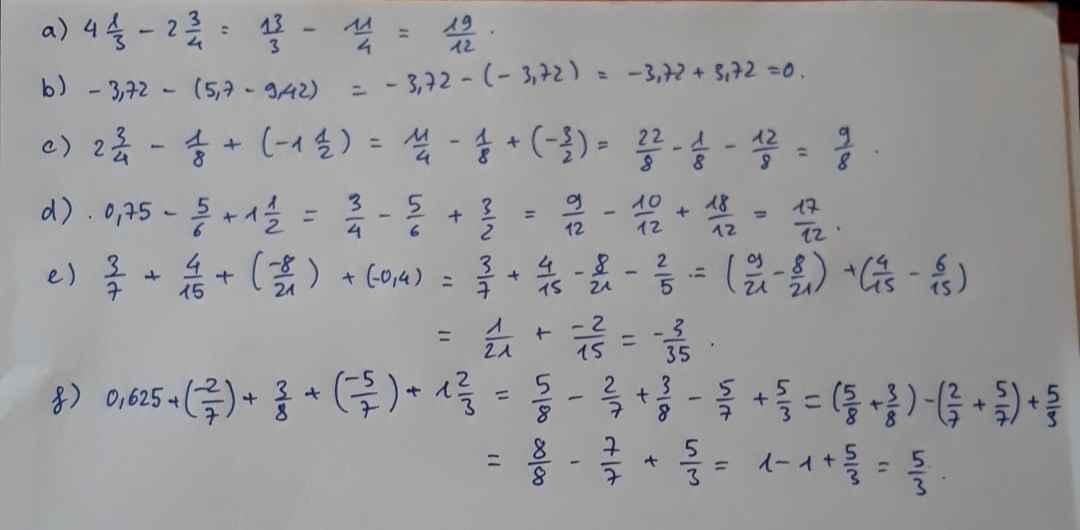 a) 4 1/3 - 2 3/4 = 13/3 - 11/4 = 19/12 .
b) -3,72 - (5,7 - 9,42) = -3,72 - (-3,72) = -3,72 + 3,72 = 0.
c) 2 3/4 - 1/8 + (-1 1/2) = 11/4 - 1/8 + (-3/2) = 22/8 - 1/8 - 12/8 = 9/8 .
d) . 0,75 - 5/6 + 1 1/2 = 3/4 - 5/6 + 3/2 = 9/12 - 10/12 + 18/12 = 17/12 .
e) 3/7 + 4/15 + (-8/21) + (-0,4) = 3/7 + 4/15 - 8/21 - 2/5 = (9/21 - 8/21) + (4/15 - 6/15)
= 1/21 + -2/15 = -3/35 .
f) 0,625 + (-2/7) + 3/8 + (-5/7) + 1 2/3 = 5/8 - 2/7 + 3/8 - 5/7 + 5/3 = (5/8 + 3/8) - (2/7 + 5/7) + 5/3
= 8/8 - 7/7 + 5/3 = 1 - 1 + 5/3 = 5/3 .